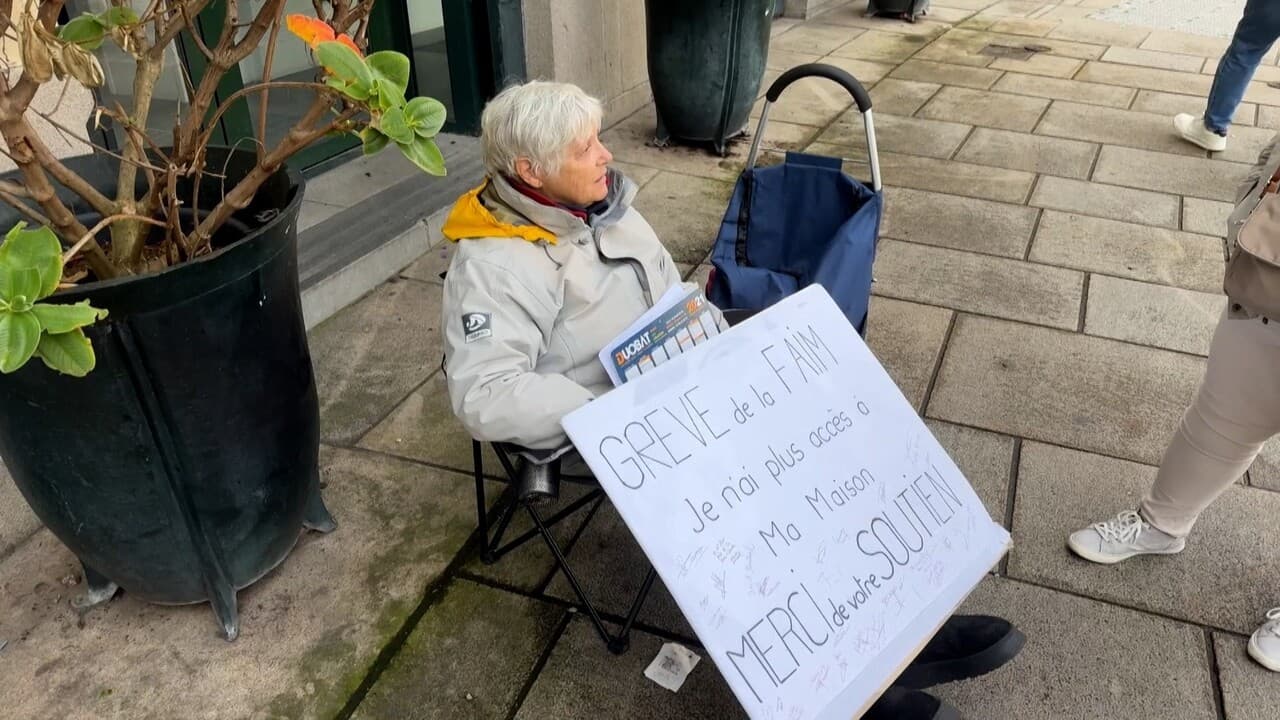 DUOBAT
2021
GREVE de la FAIM
Je n'ai plus accès à
Ma Maison
MERCI de votre SOUTIEN